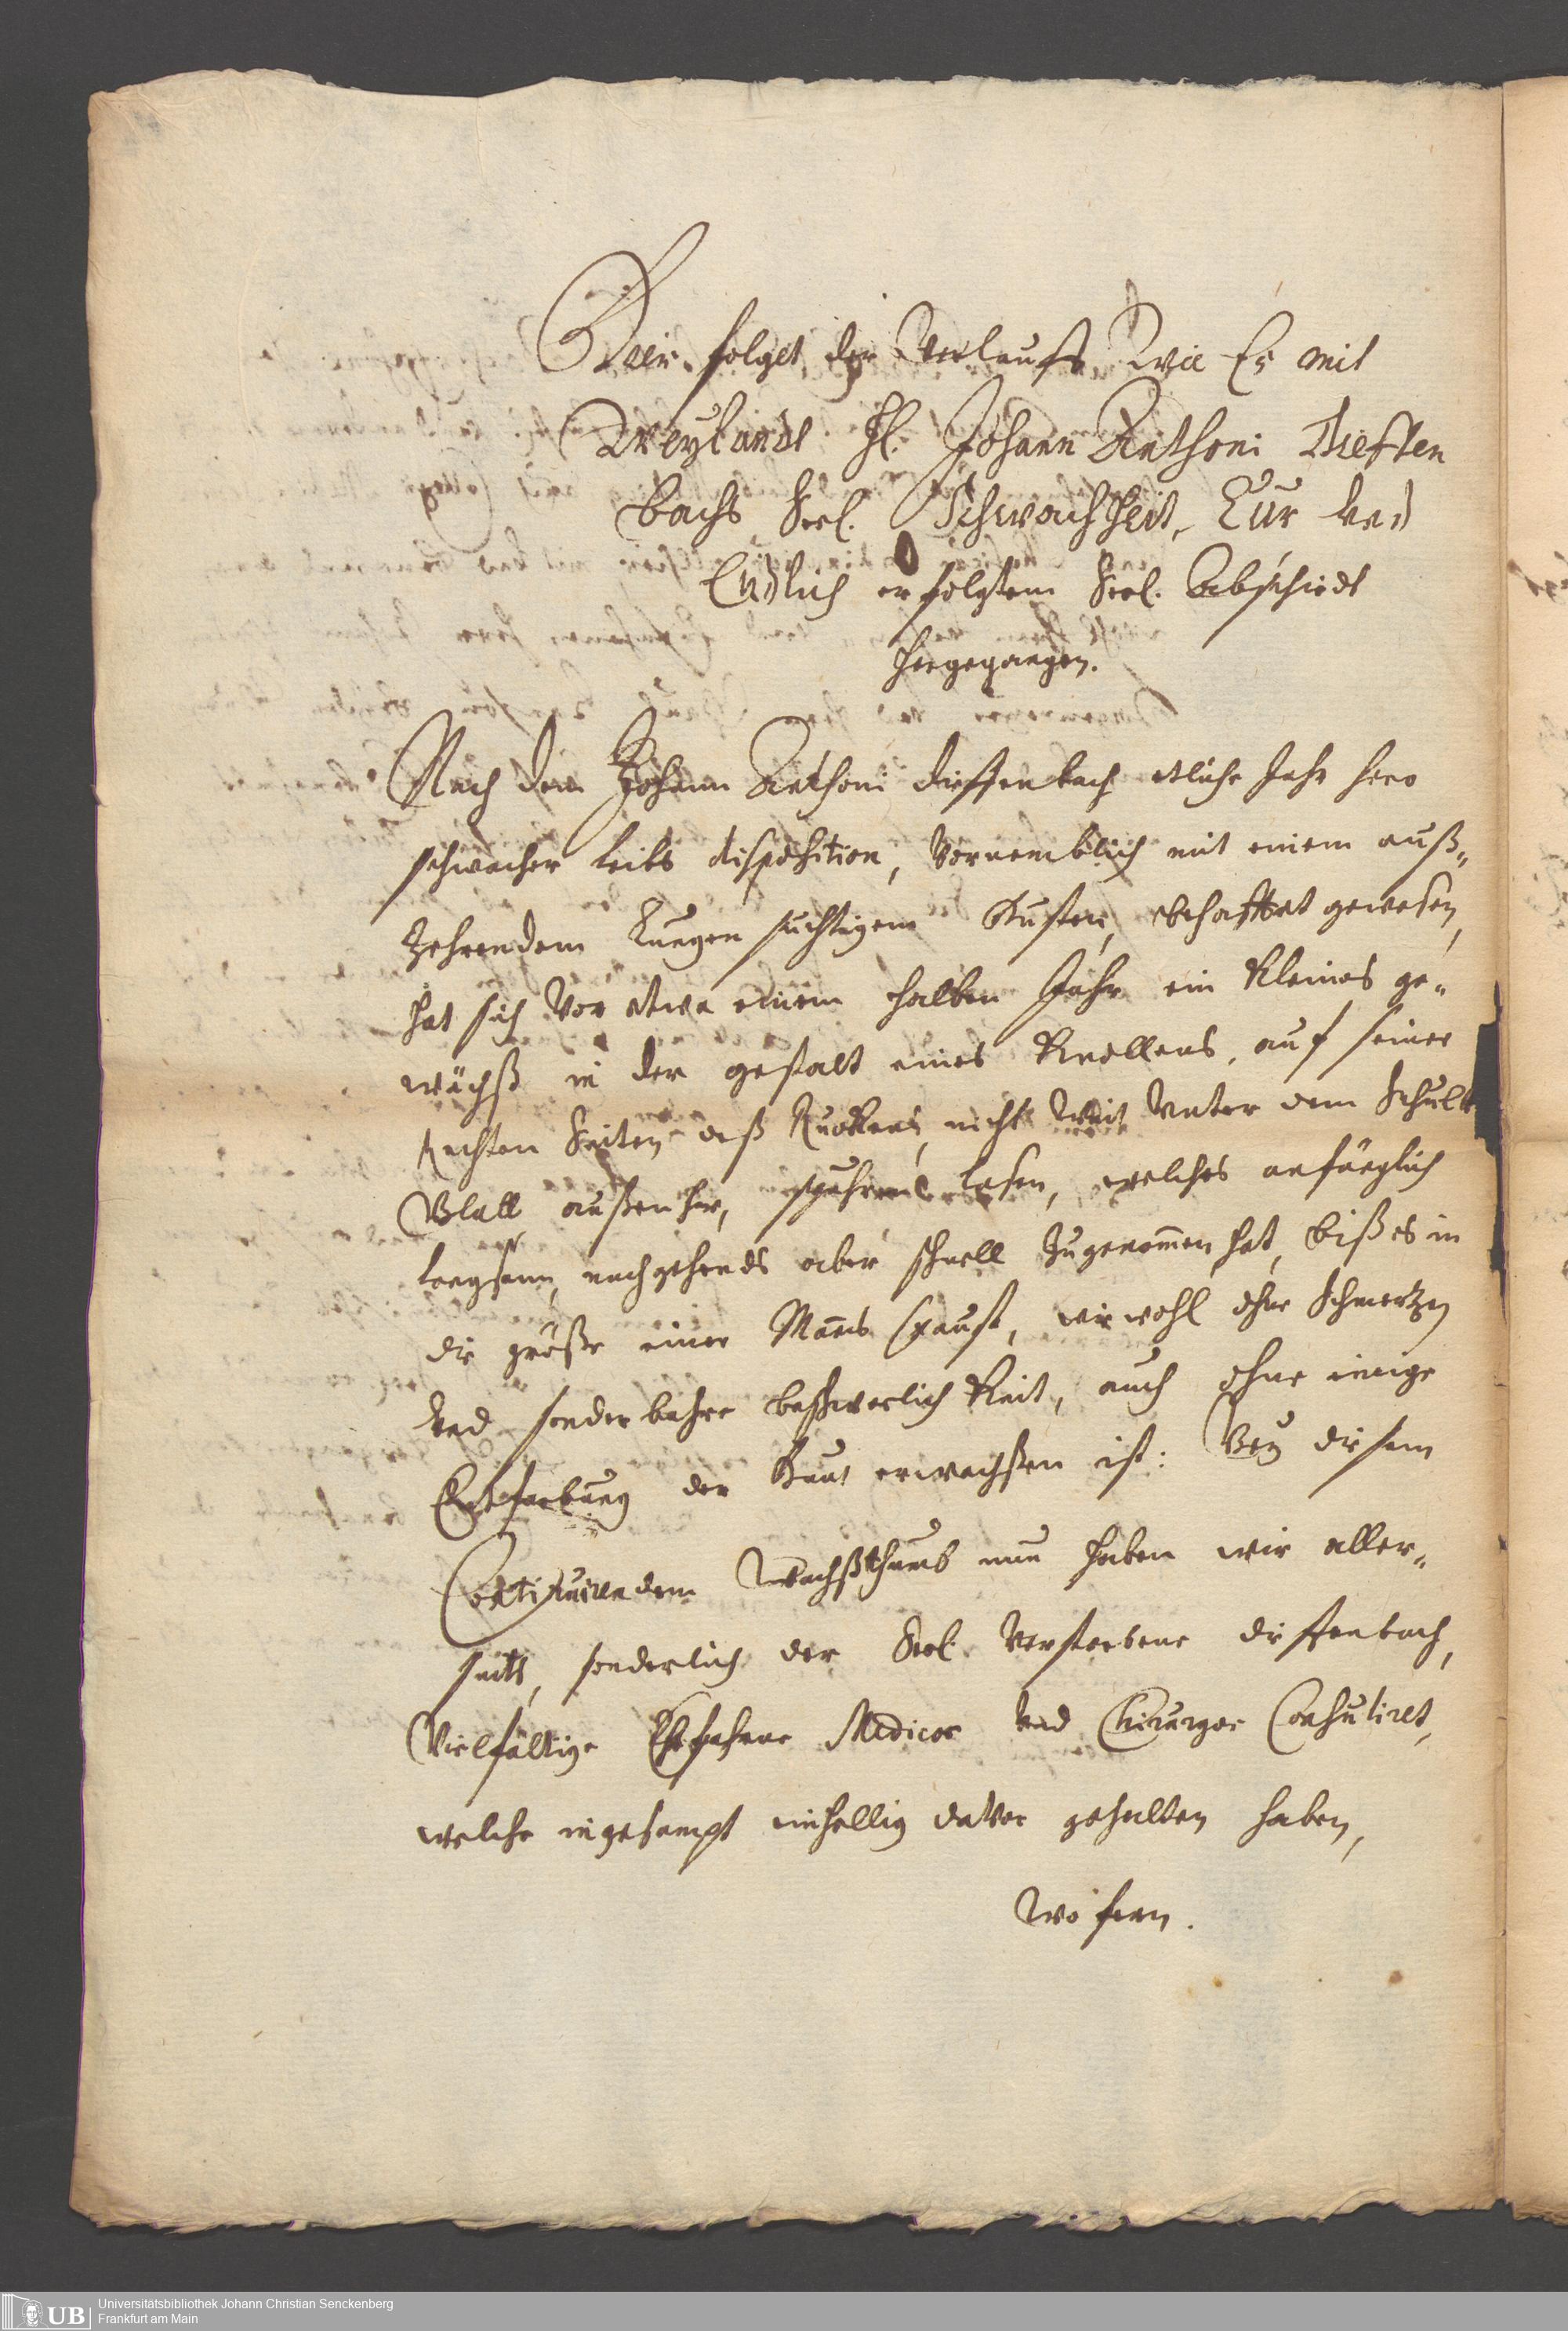 Hier folget der Verlauff Wie Es mit
Weylandt H. Johann Anthoni Dieffen
bachs Seel. Schwachheit, Cur und
Endlich erfolgtem Seel. Abschiedt
hergegangen.
Nach dem Johann Anthoni Dieffenbach etliche Jahr hero
schwacher leibs disposition, Vornemblich mit einem auß„
zehrendem Lungensüchtigem Husten, behafftet gewesen,
hat sich Vor etwa einem halben Jahr ein kleines ge„
wächß in der gestalt eines Knollens, auf seiner
rechten Seiten deß Ruckens, nicht Weit Unter dem Schult
Blatt außen her, spühren lasen, welches anfänglich
langsam, nachgehends aber schnell zugenommen hat, biß es in
die größe einer Manns Faust, wie wohl ohne Schmertzen
Und sonderbahre beschwerlichkeit, auch ohne einige
Entfarbung der Haut erwachßen ist: Bey diesem
Continuirendem Wachßthumb nun haben wir aller„
seits, sonderlich der Seel. Verstorbene Dieffenbach,
Vielfältige Erfahrne Medicos Und Chirurgos Consuliret,
welche ingesampt einhellig davor gehalten haben,
Wo fern.
Universitätsbibliothek Johann Christian Senckenberg
Frankfurt am Main
UB